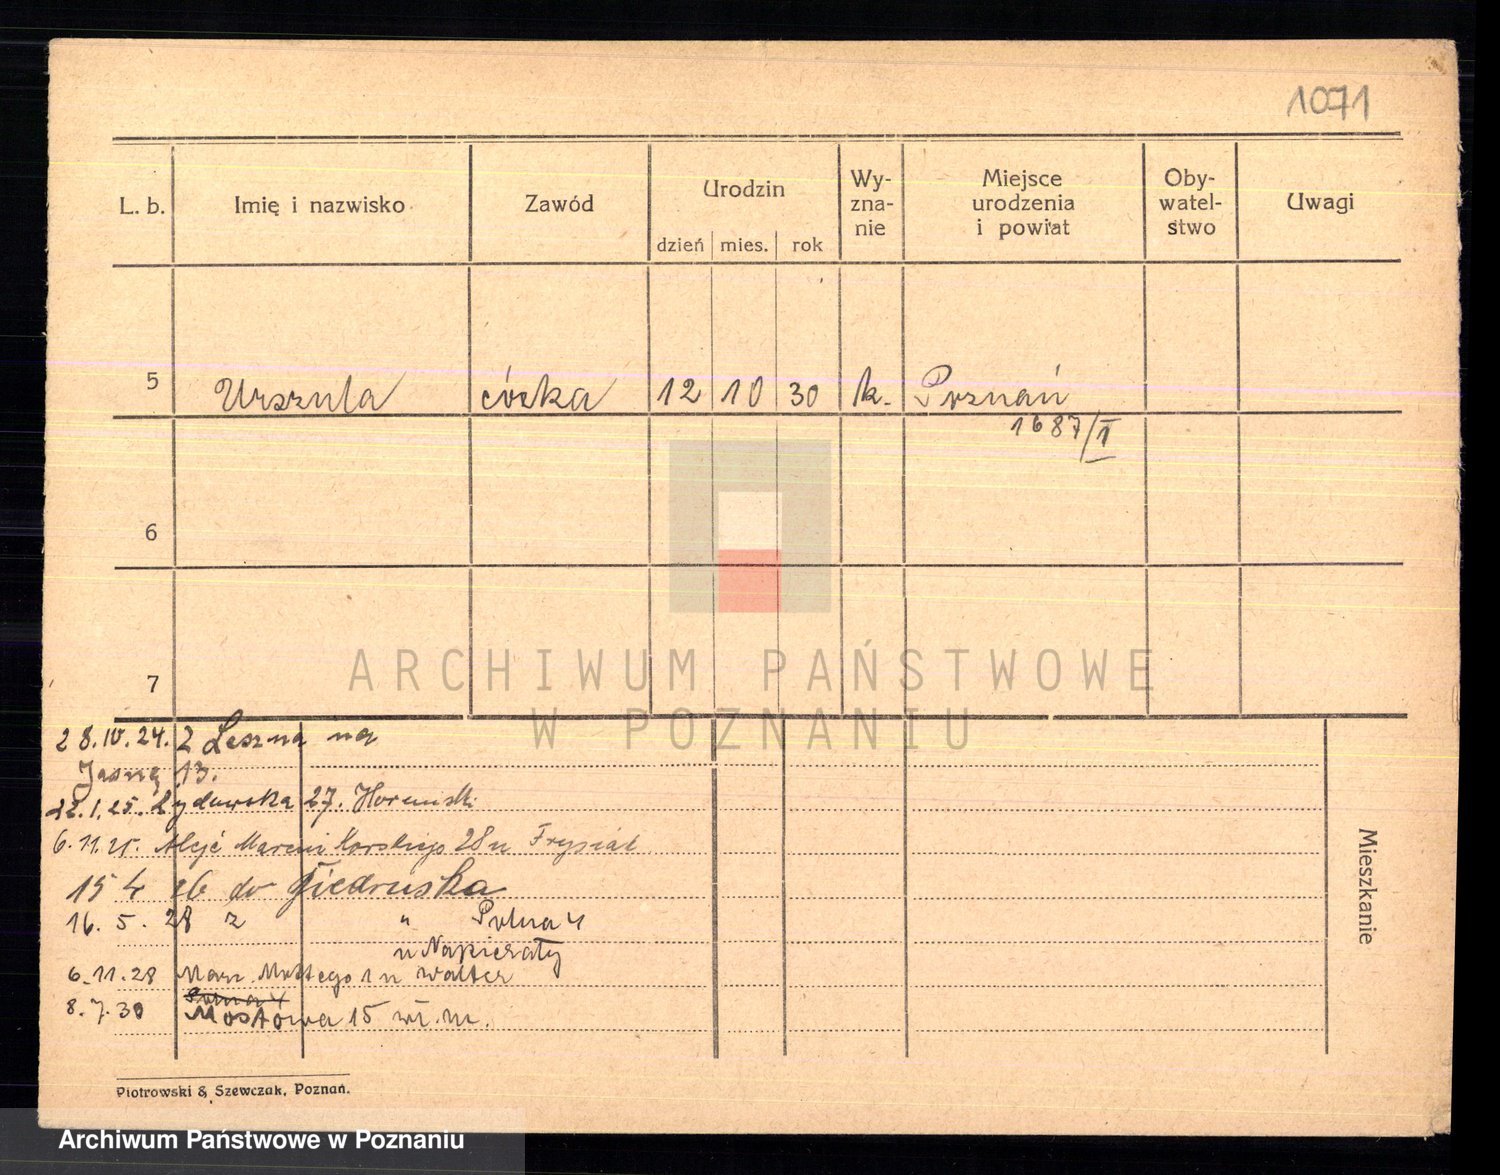 1071
L. b. Imię i nazwisko Zawód Urodzin dzień mies. rok Wy-zna-nie Miejsce urodzenia i powiat Oby-watel-stwo Uwagi
5 Urszula córka 12 10 30 k. Poznań
1687/I
6
7
ARCHIWUM PAŃSTWOWE
W POZNANIU
28.IV.24. Z Leszna na
Jasną 13.
22.1.25. Żydowska 27.
6.11.25. Aleje Marcinkowskiego 28 u
15 4 26 do Biedruska
16. 5. 28 z " Polna 4
u Napierały
6.11.28 Marc. Mottego 1 u Walter
8.7.30 Polna 4
Mostowa 15 wł. m.
Mieszkanie
Piotrowski & Szewczak, Poznań.
Archiwum Państwowe w Poznaniu